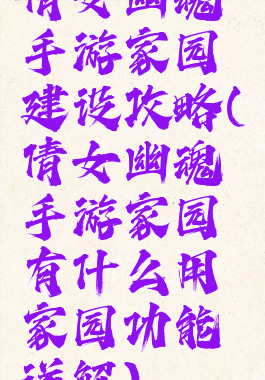 倩女幽魂
手游家园
建设攻略(
倩女幽魂
手游家园
有什么用
家园功能
详解)